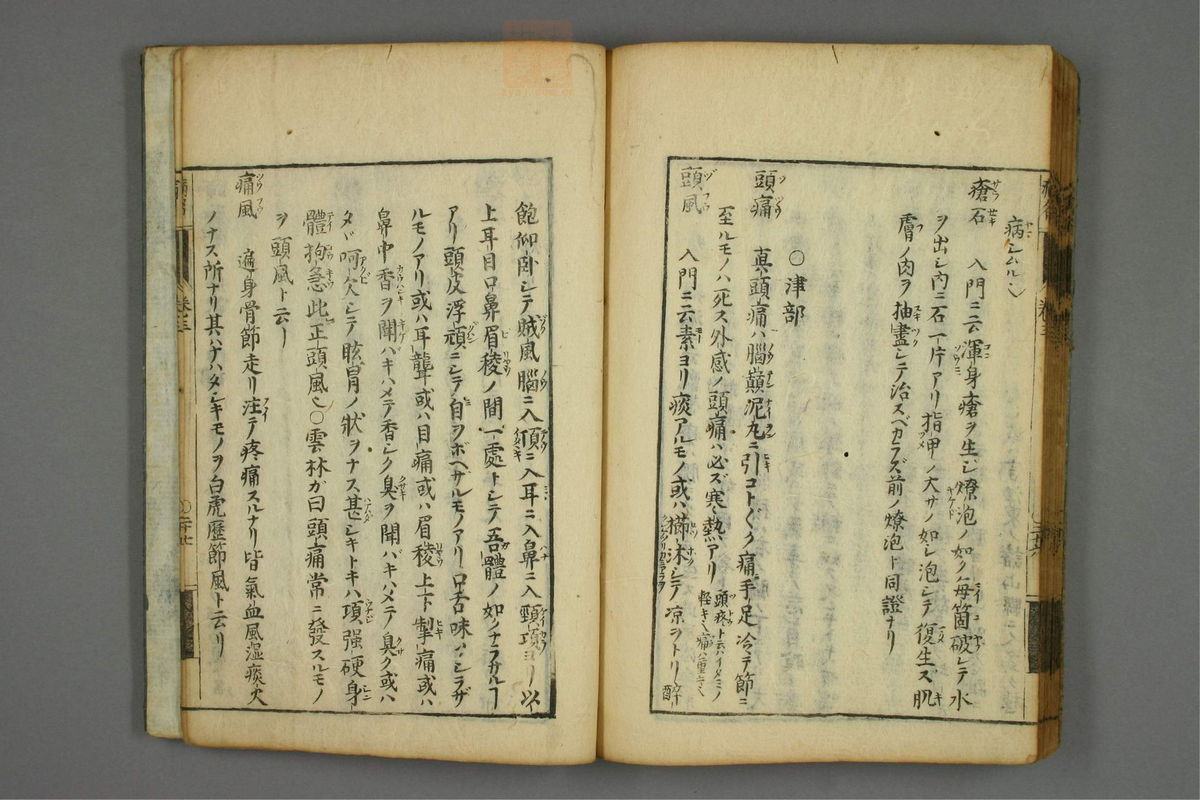 病シムル
瘡石 入門ニ云渾身瘡ヲ生シ燎泡ノ如ク毎箇破レテ水
ヲ出シ内ニ石一片アリ指甲ノ大サノ如シ泡シテ復生ス肌
膚ノ肉ヲ抽盡シテ治スベカラズ前ノ燎泡ト同證ナリ
○津部
頭痛 真頭痛ハ腦巓泥丸ニ引コト〴〵ク痛手足冷テ節ニ
至ルモノハ死ス外感ノ頭痛ハ必ズ寒熱アリ 頭疼ト云ハイタミノ
軽キ 痛ハ重キ
頭風 入門ニ云素ヨリ痰アルモノ或ハ櫛沐シテ凉ヲトリ酔
飽仰卧シテ賊風腦ニ入頂ニ入耳ニ入鼻ニ入頸項ヨリ以
上耳目口鼻眉稜ノ間一處トシテ吾體ノ如ノナラサル
アリ頭皮浮頑ニシテ自ヲボヘサルモノアリ口舌味ハシラザ
ルモノアリ或ハ耳聾或ハ目痛或ハ眉稜上下掣痛或ハ
鼻中香ヲ聞バキハメテ香シク臭ヲ聞バキハメテ臭ク或ハ
タヾ呵欠シテ眩冒ノ狀ヲナス甚シキトキハ項强硬身
體拘急此正頭風 ○雲林ガ曰頭痛常ニ發スルモノ
ヲ頭風ト云
痛風 遍身骨節走リ注テ疼痛スルナリ皆氣血風湿痰火
ノナス所ナリ其ハナハダシキモノヲ白虎歷節風ト云リ
卷三